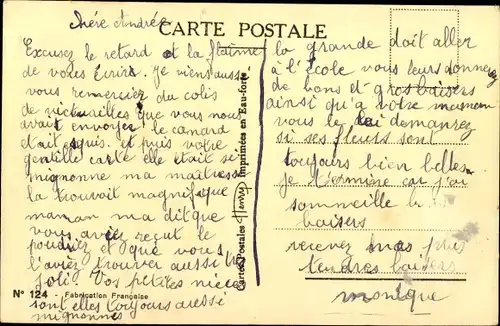 chére Andrée
CARTE POSTALE
Excusez le retard et la flaime
de vous écrire. Je viens aussi
vous remerciez du colis
de victuailles que vous nous
avait envoyer le canard
était squis. et puis votre
gentille carte elle était si
mignonne ma maîtresse
la trouvait magnifique
maman m'a dit que
vous aviez reçut le
que vous
l'aviez trouver aussi
joli. Vos petites nièces
sont elles toujours aussi
mignonnes
Cartes Postales
Imprimées en Eau-forte
la grande doit aller
à l'école vous leurs donnerez
de bons et gros baisers
ainsi qu'a votre maman
vous le lui demanrez
si ses fleurs sont
toujours bien belles
je termine car j'ai
sommeille
baisers
recevez mes plus
tendres baisers
monique
N° 124 - Fabrication Française